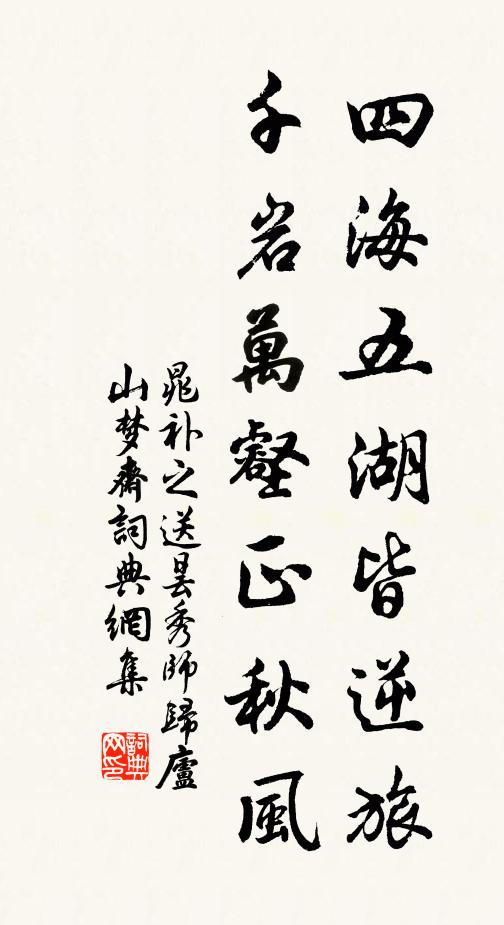 四海五湖皆逆旅
千岩萬壑正秋風
晁补之送昙秀師歸廬
山梦齋詞典網集
詞典网印